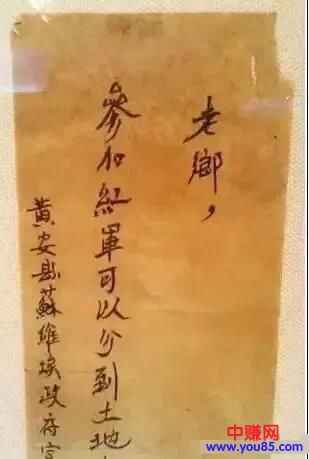 老鄉，
參加紅軍可以分到土地
黃安縣蘇維埃政府宣
中赚网
www.you85.com